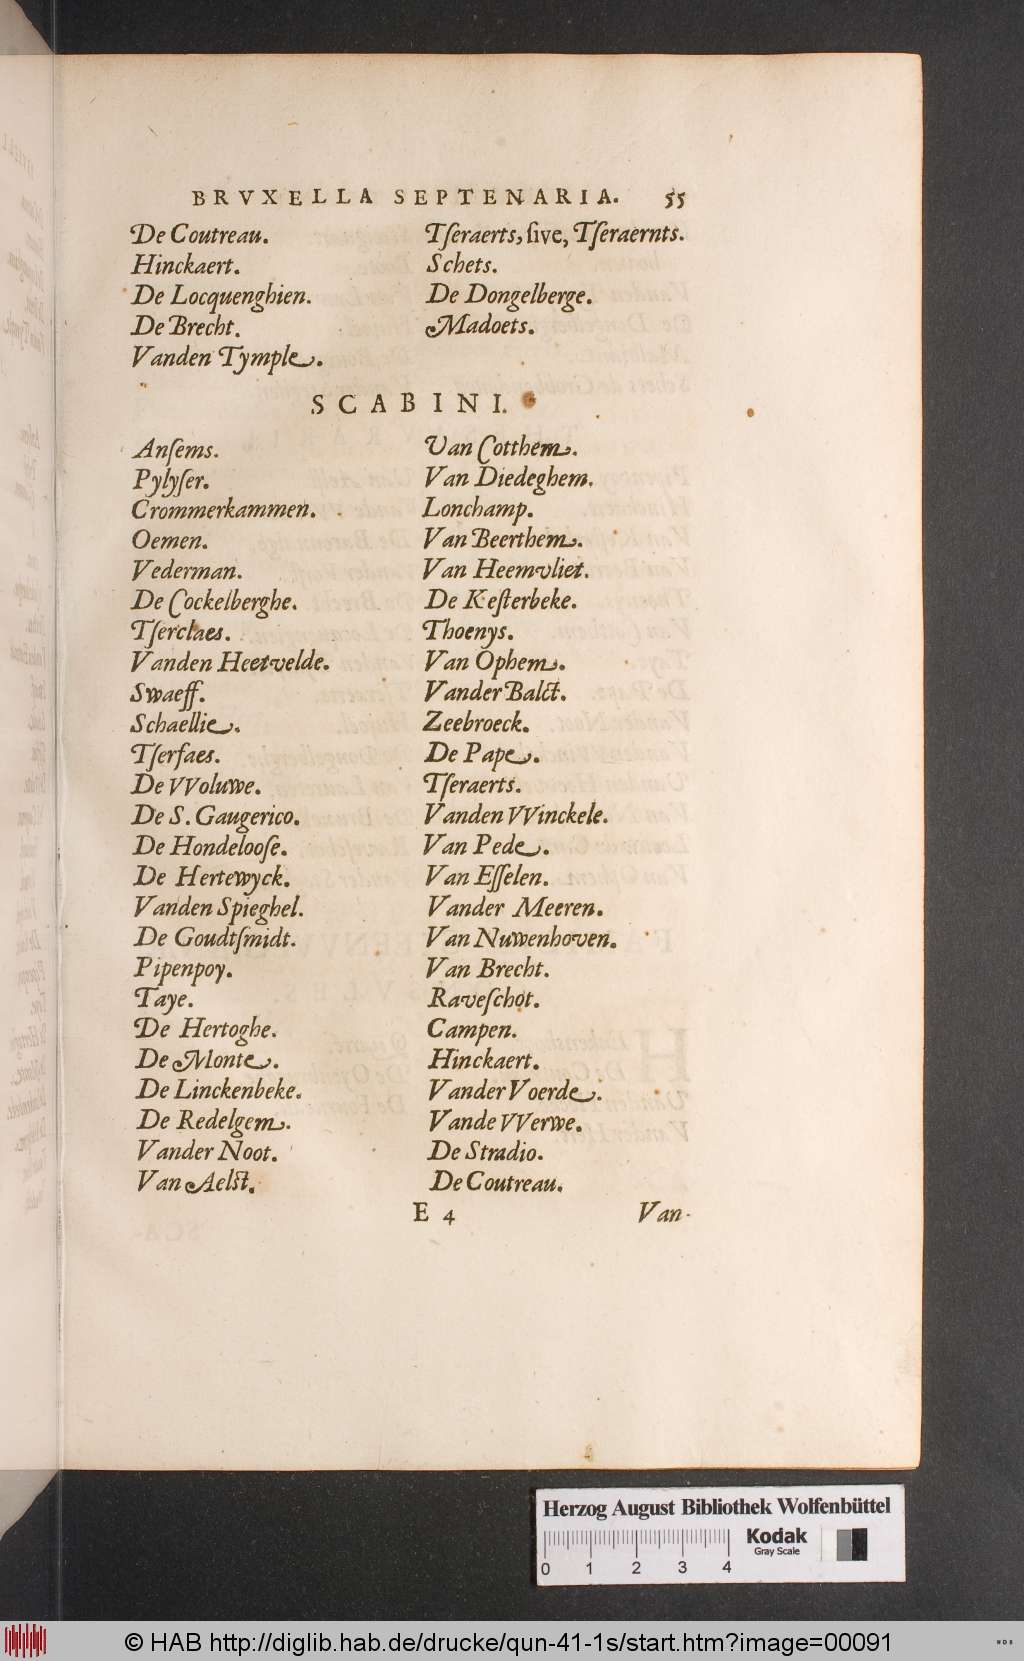 BRVXELLA SEPTENARIA. 55
De Coutreau.
Hinckaert.
De Locquenghien.
De Brecht.
Vanden Tymple.
Tſeraerts, ſive, Tſeraernts.
Schets.
De Dongelberge.
Madoets.
SCABINI.
Anſems.
Pylyſer.
Crommerkammen.
Oemen.
Vederman.
De Cockelberghe.
Tſerclaes.
Vanden Heetvelde.
Swaeff.
Schaellie.
Tſerfaes.
De VVoluwe.
De S. Gaugerico.
De Hondelooſe.
De Hertewyck.
Vanden Spieghel.
De Goudtſmidt.
Pipenpoy.
Taye.
De Hertoghe.
De Monte.
De Linckenbeke.
De Redelgem.
Vander Noot.
Van Aelst.
Van Cotthem.
Van Diedeghem.
Lonchamp.
Van Beerthem.
Van Heemvliet.
De Keſterbeke.
Thoenys.
Van Ophem.
Vander Balct.
Zeebroeck.
De Pape.
Tſeraerts.
Vanden VVinckele.
Van Pede.
Van Eſſelen.
Vander Meeren.
Van Nuwenhoven.
Van Brecht.
Raveſchot.
Campen.
Hinckaert.
Vander Voerde.
Vande VVerwe.
De Stradio.
De Coutreau.
E 4 Van-
Herzog August Bibliothek Wolfenbüttel
Kodak
Gray Scale
0 1 2 3 4
© HAB http://diglib.hab.de/drucke/qun-41-1s/start.htm?image=00091